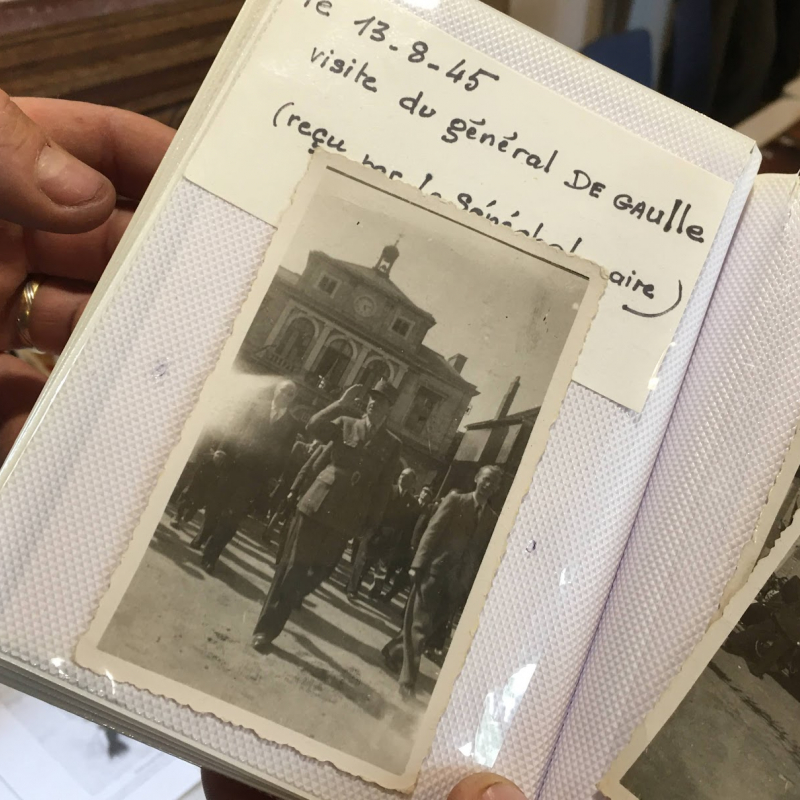 le 13-8-45
visite du général DE GAULLE
(reçu par le Général aire)